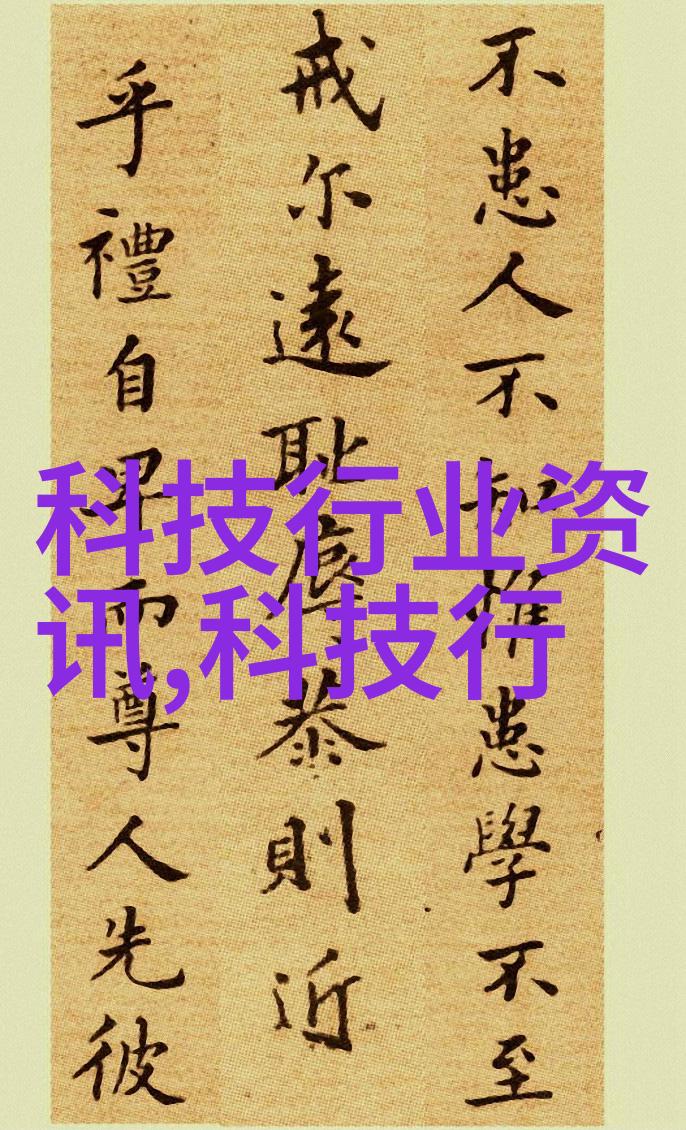 不患人不知惟患學不至
戒尔遠耻辱恭則近
乎禮自卑而尊人先彼
科技行业资
讯,科技行